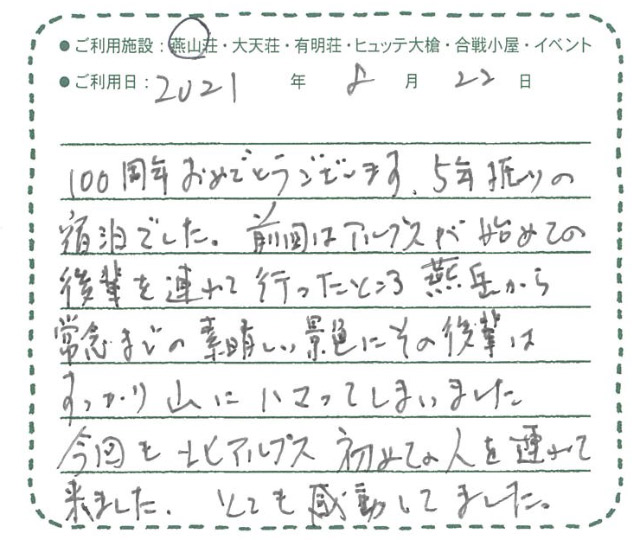 ●ご利用施設：燕山荘・大天荘・有明荘・ヒュッテ大槍・合戦小屋・イベント
●ご利用日：2021 年 8 月 22 日
100周年おめでとうございます。5年振りの
宿泊でした。前回はアルプスが始めての
後輩を連れて行ったところ燕岳から
常念までの素晴しい景色にその後輩は
すっかり山にハマってしまいました
今回も北アルプス初めての人を連れて
来ました。とても感動してました。